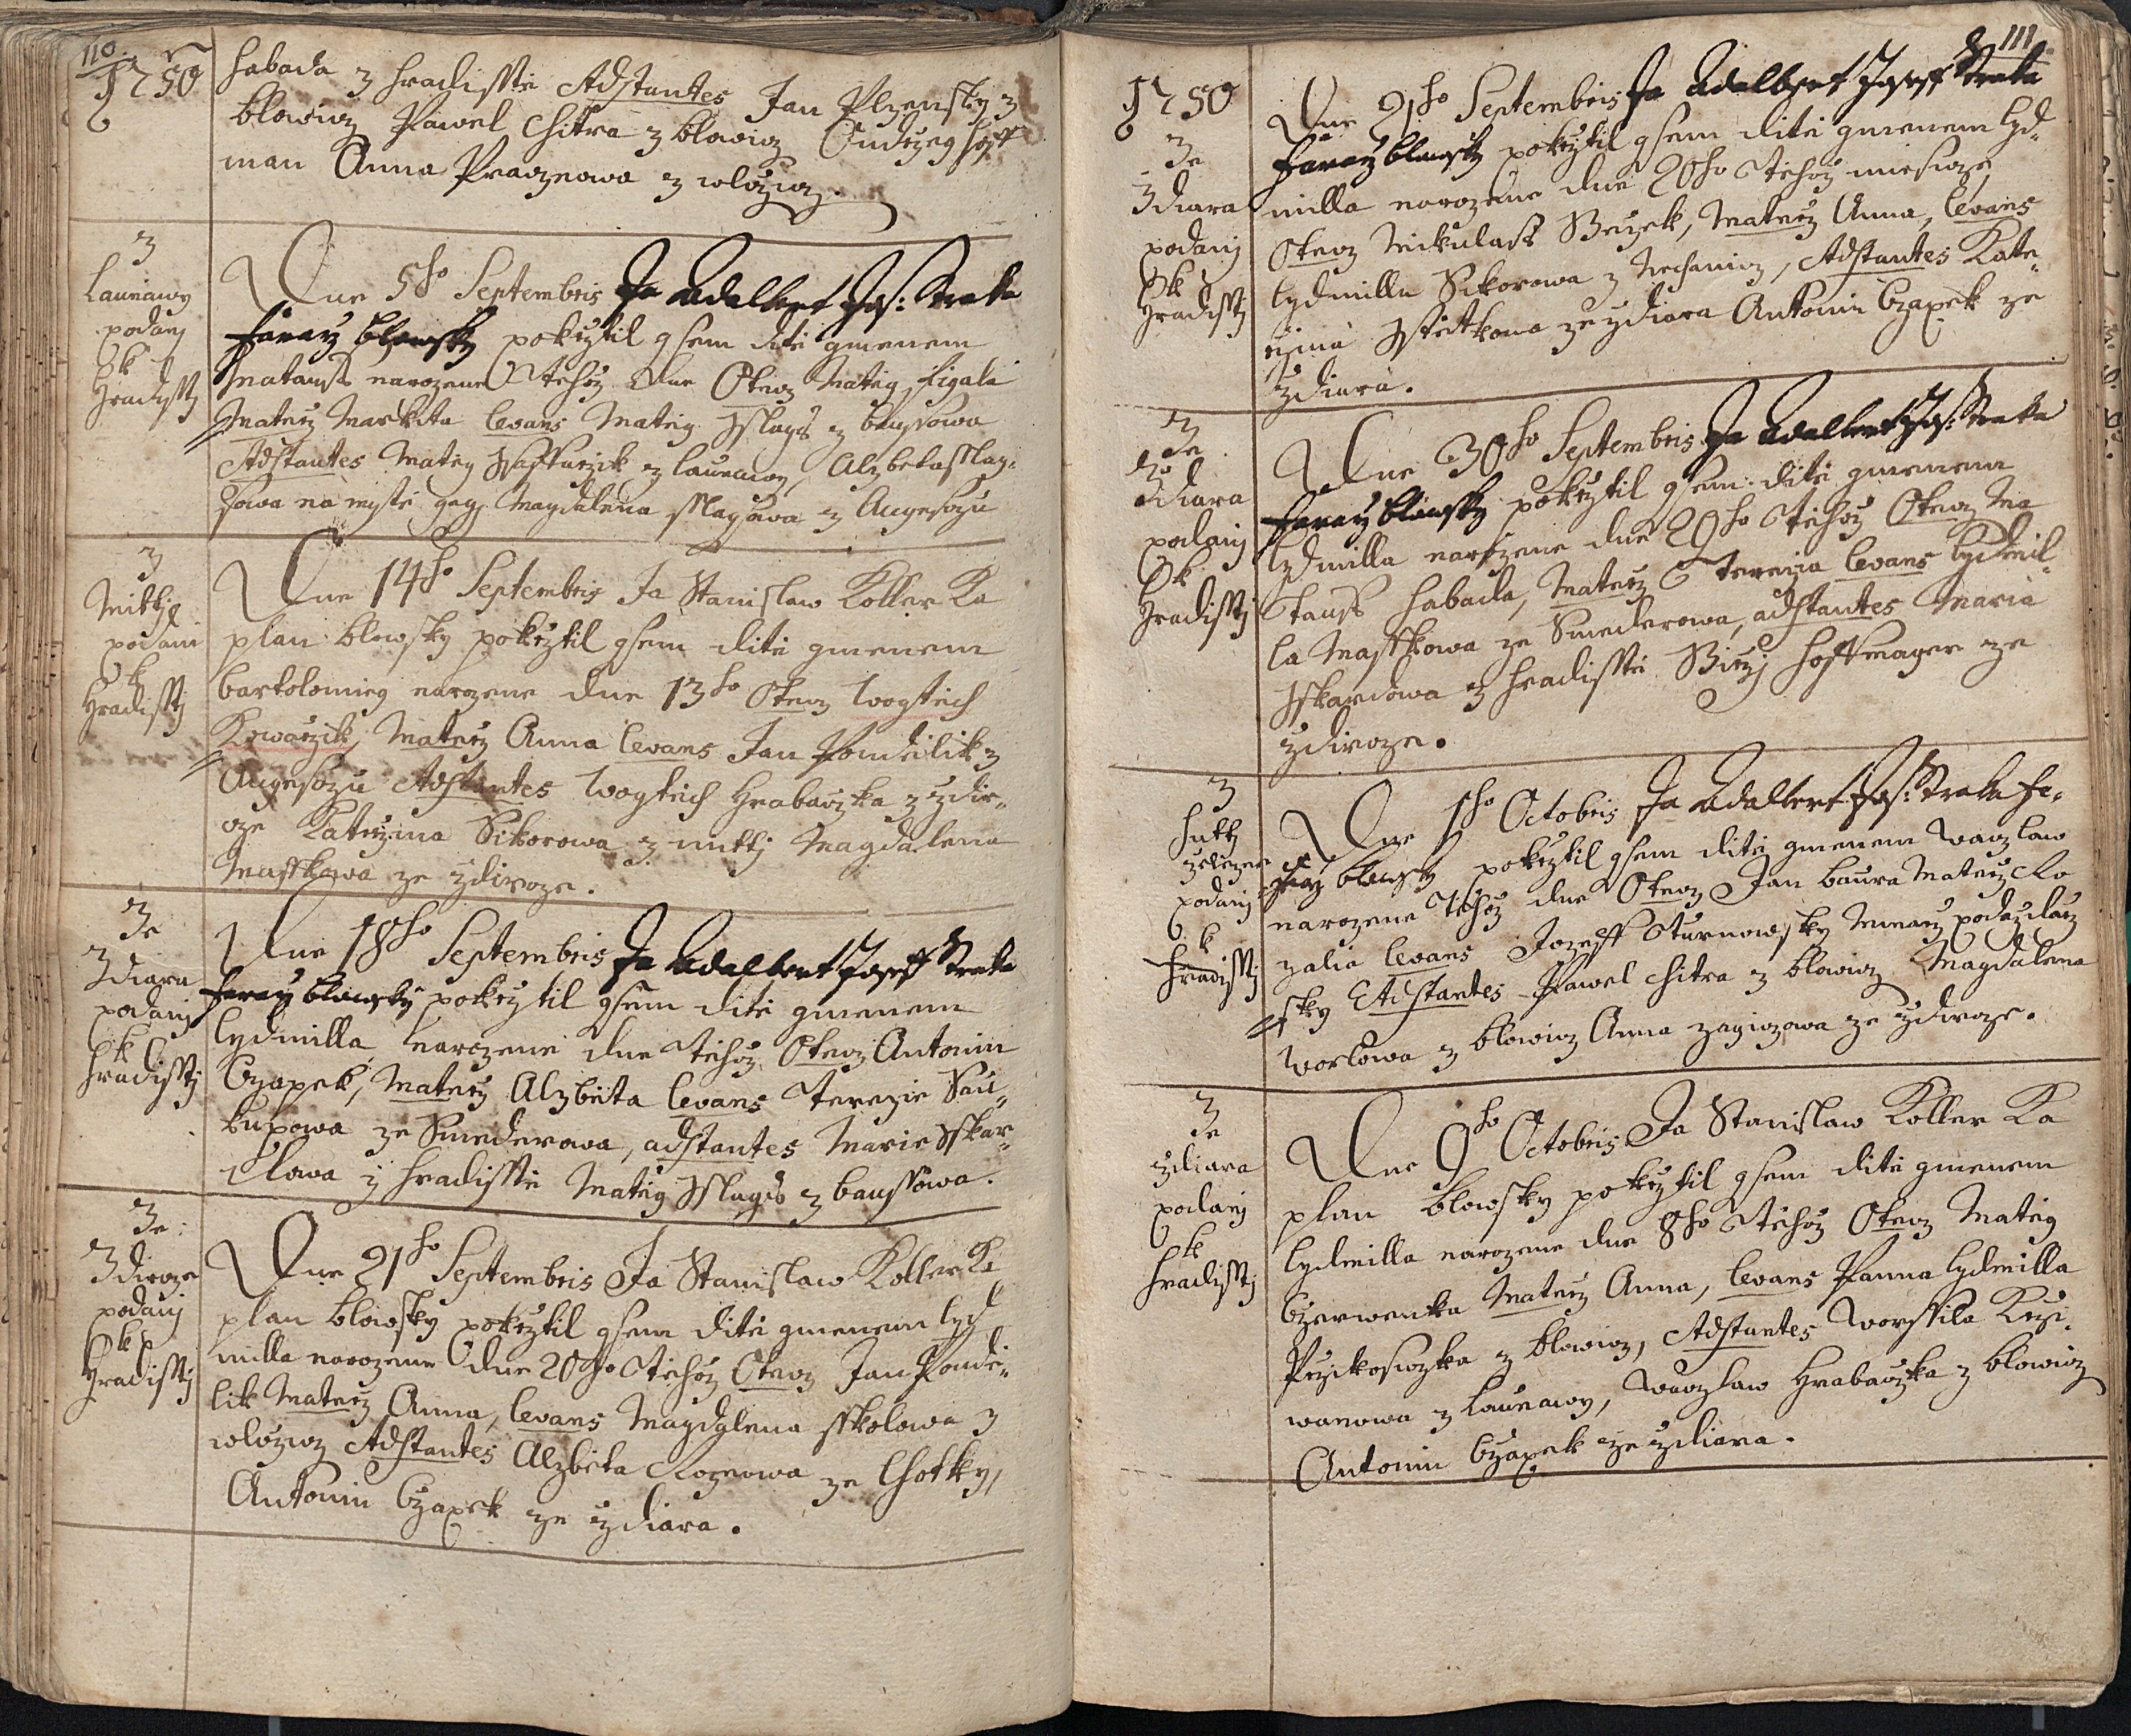 110
1750
habada z hradisstie Adstantes Jan Plzensky z
blowicz Pawel Chitra z blowicz Ondrzeg hoff
man Anna Pracznowa z wlczicz.
z
Launiowy
podanj
k
Hradisstj
Dne 5ho Septembris Ja Adalbert Jos: Straka
Fararz blowsky pokrztil gsem ditie gmenem
Matauss narozene tehoz dne Otecz Matieg figala
Materz Markita levans Matieg Sslagis z baussowa
Adstantes Matieg z launiowy, Alzbeta sslag-
sowa na mystie gegj Magdalena z Augezdzu
z
Mittj
podani
k
Hradisstj
Dne 14ho Septembris Ja Stanislaw Koller Ka
plan blowsky pokrztil gsem ditie gmenem
bartolomieg narozene dne 13ho Otecz wogtiech
Kowarzik, Materz Anna levans Jan Pondielik z
Augezdzu Adstantes wogtiech Hrabaczka z zdir-
cze Katerzina Sikorowa z mittj Magdalena
Masskowa ze zdircze.
Ze
Zdiara
podanj
k
hradisstj
Dne 18ho Septembris Ja Adalbert Joseff Straka
Fararz blowsky pokrztil gsem ditie gmenem
lydmilla narozene dne tehoz Otecz Antonin
Czapek, Materz Alzbieta levans Terezie Sau-
kupowa ze Smederowa, adstantes Marie Sskar-
dowa z hradisstie Matieg Sslagis z baussowa.
Ze
Zdircze
podanj
k
Hradisstj
Dne 21ho Septembris Ja Stanislaw Koller Ka
plan blowsky pokrztil gsem ditie gmenem lyd
milla narozene dne 20ho tehoz Otecz Jan Pondie-
lik Materz Anna, levans Magdalena sskolowa z
wlczicz Adstantes Alzbieta Roznowa ze lhotky,
Antonin Czapek ze zdiara.
111
1750
Ze
Zdiara
podanj
k
Hradisstj
Dne 21ho Septembris Ja Adalbert Joseff Straka
Fararz blowsky pokrztil gsem ditie gmenem lyd-
milla narozene dne 20ho tehoz miesicze
Otecz Mikulass Materz Anna, levans
lydmilla Sikorowa z Nechanicz, Adstantes Kate-
rzina ze zdiara Antonin Czapek ze
zdiara.
Ze
Zdiara
podanj
k
Hradisstj
Dne 30ho Septembris Ja Adalbert Jos: Straka
Fararz blowsky pokrztil gsem ditie gmenem
lydmilla narozene dne 29ho tehoz Otecz Ma
tauss habada, Materz Terezia levans lydmil-
la Masskowa ze Smederowa, adstantes Maria
Sskardowa z hradisstie Girzj hoffmayer ze
zdircze.
z
hutj
zelezne
podanj
k
hradisstj
Dne 1ho Octobris Ja Adalbert Jos: Straka Fa-
rarz blowsky pokrztil gsem ditie gmenem waczlaw
narozene tehoz dne Otecz Jan baura Materz Ro
zalie levans Jozeff Turnowsky
sky Adstantes Pawel Chitra z blowicz Magdalena
worlowa z blowicz Anna zagiczowa ze zdircze.
z
Ze
zdiara
podanj
k
hradisstj
Dne 9ho Octobris Ja Stanislaw Koller Ka
plan blowsky pokrztil gsem ditie gmenem
lydmilla narozene dne 8ho tehoz Otecz Matieg
Czerwenka Materz Anna, levans Panna lydmilla
z blowicz, Adstantes Worssila Krzi-
wanowa z launiowy, Waczlaw Hrabaczka z blowicz
Antonin Czapek ze zdiara.